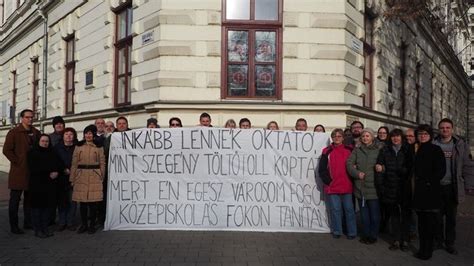 ...INKÁBB LENNÉK OKTATÓ
MINT SZEGÉNY TÖLTŐTOLL KOPTATÓ
MERT ÉN EGÉSZ VÁROSOM FOGOM
KÖZÉPISKOLÁS FOKON TANÍTANI